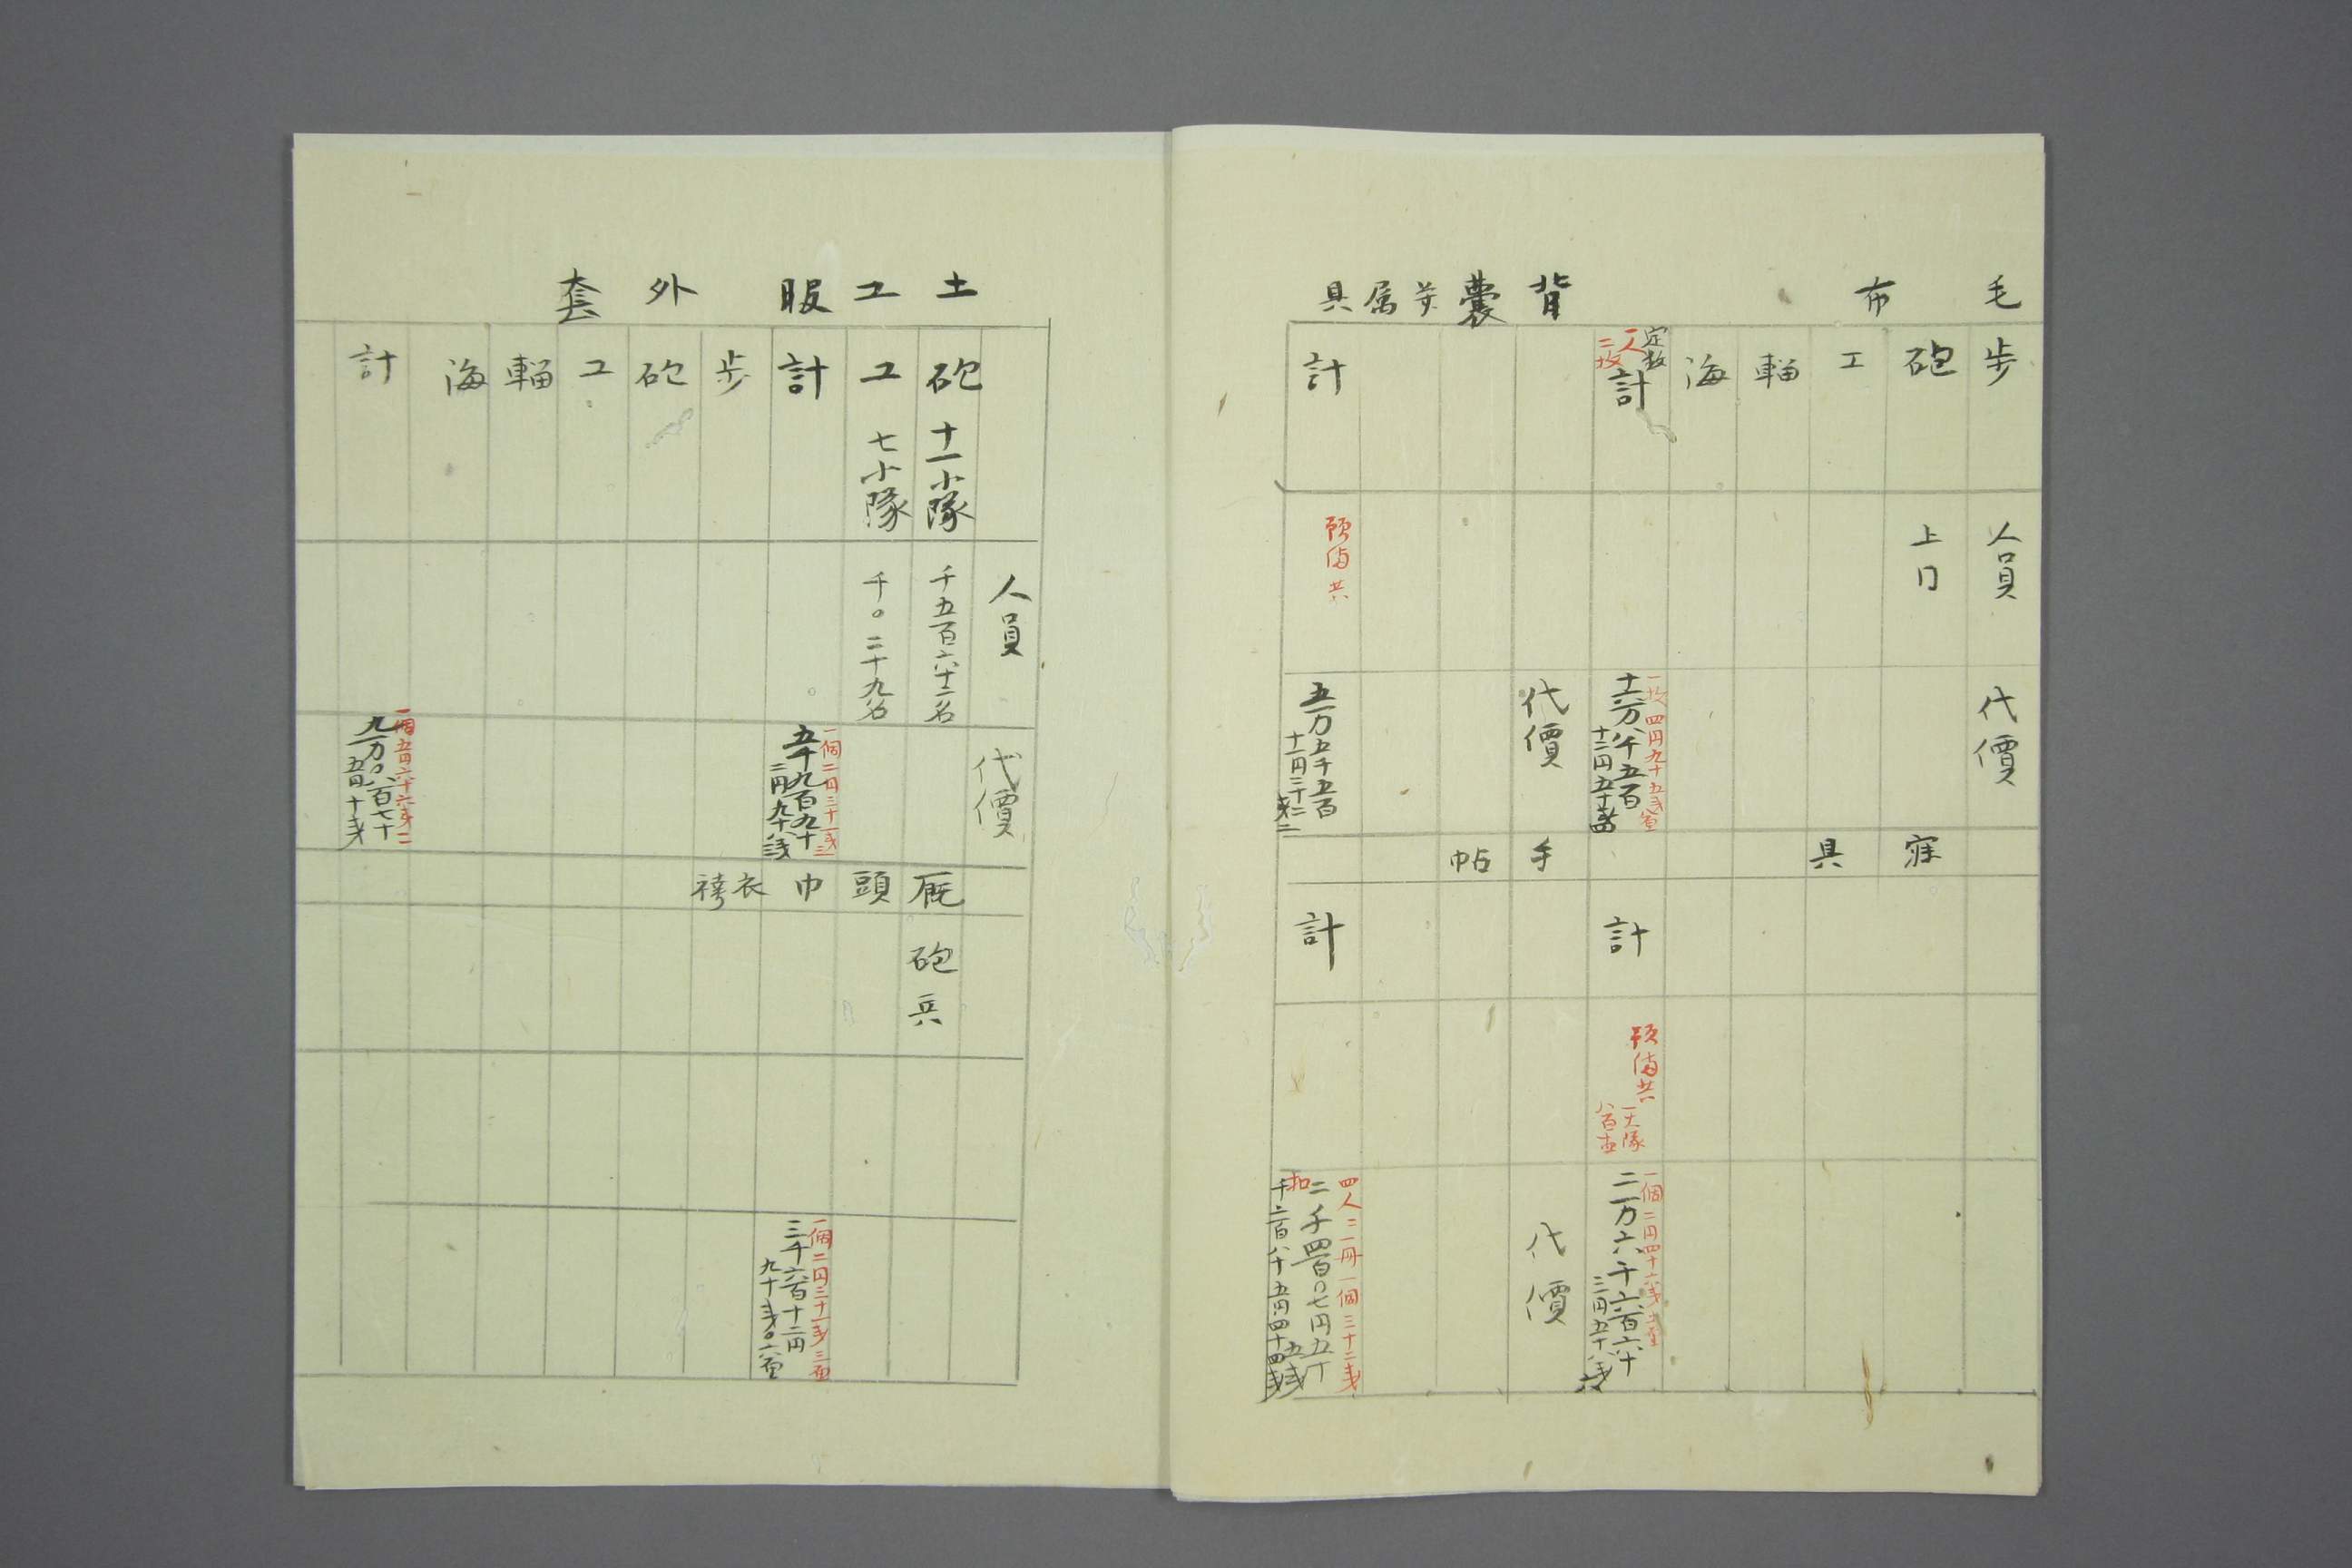 毛布
歩
人員
代價
砲
上仝
工
輜
海
定数
一人
二枚
計
一枚四円九十五銭
十一万八千五百
十二円五十銭
背嚢并属具
代價
計
預備共
五万五千五百
十一円三十二銭二
寝具
計
預備共
一大隊
一個二円四十六銭
二万六千六百六十
三円五十八銭
手帖
代價
計
四人二二冊一個三十二銭
二千四百〇七円五十五銭
扣
千六百八十五円四十四銭
土工服
人員
代價
砲
十一小隊
千五百六十二名
工
七小隊
千〇二十九名
計
一個二円三十一銭三
五千九百九十
二円九十八銭
外套
歩
砲
工
輜
海
計
一個五円六十六銭二
九万〇八百七十
五円十銭
厩頭巾衣袴
砲兵
一個二円三十一銭三厘
三千六百十二円
九十銭〇六厘